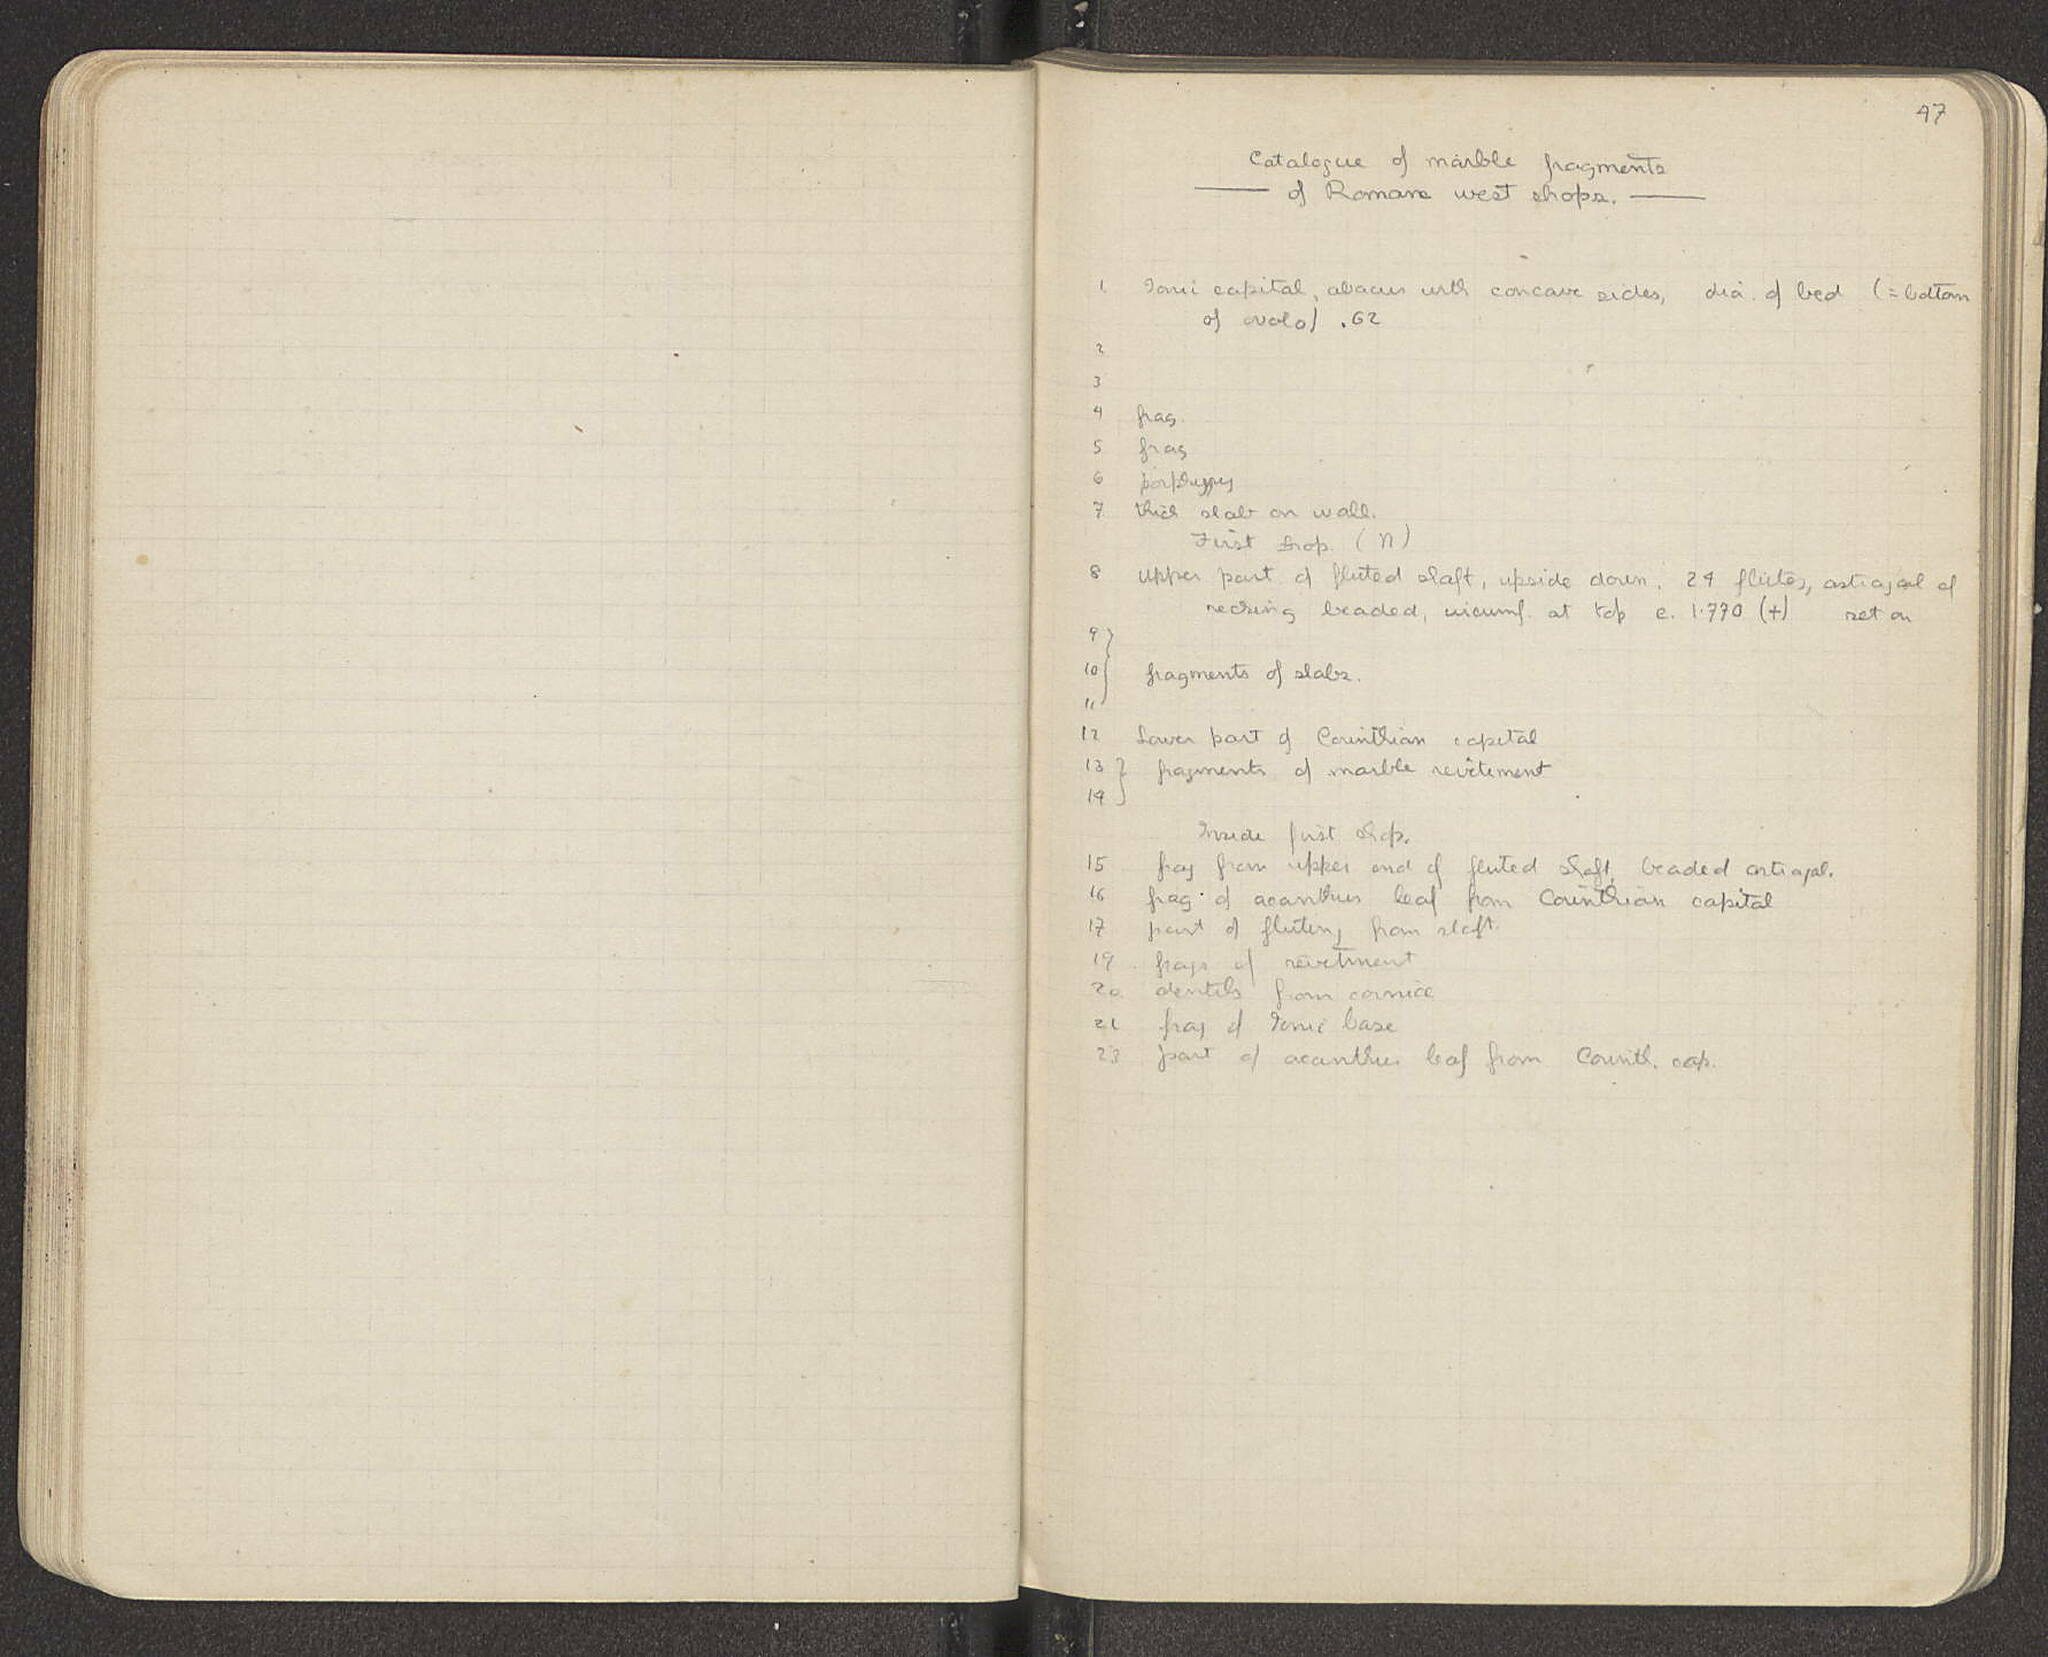 47
Catalogue of marble fragments
of Roman west shops.
1 Ionic capital, abacus with concave sides, dia. of bed (= bottom
of ovolo) .62
2
3
4 frag.
5 frag
6 porphyry
7 thick slab on wall.
First shop. (N)
8 upper part of fluted shaft, upside down. 24 flutes, astragal of
necking beaded, circumf. at top c. 1.770 (+) set on
9
10 fragments of slabs.
11
12 Lower part of Corinthian capital
13 fragments of marble revetment
14
Inside first shop.
15 frag from upper end of fluted shaft, beaded astragal.
16 frag. of acanthus leaf from Corinthian capital
17 part of fluting from shaft.
19 frags of revetment
20 dentils from cornice
21 frag of Ionic base
23 part of acanthus leaf from Corinth. cap.